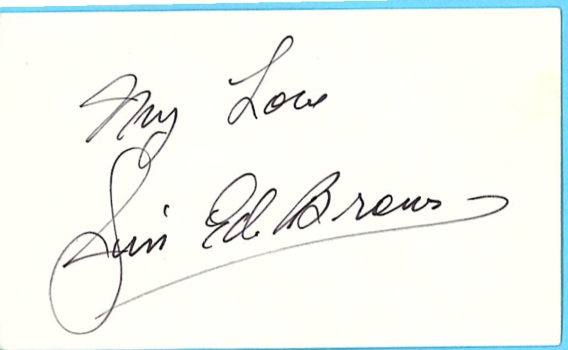 My Love
Jim Ed Brown